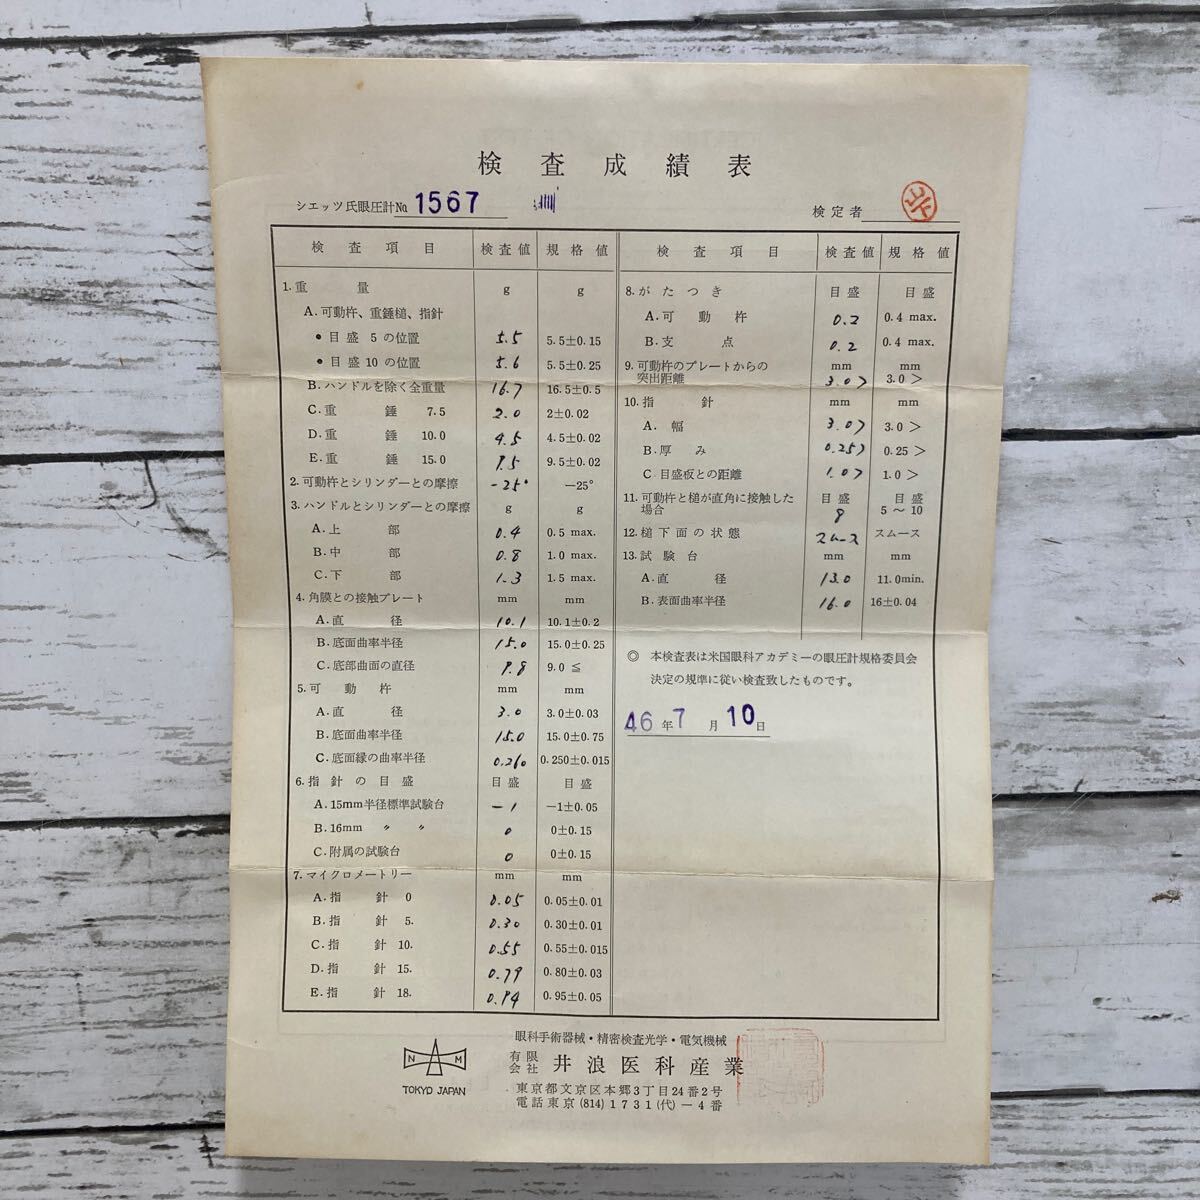 検査成績表
シエッツ氏眼圧計№ 1567
検定者 北
検査項目 検査値 規格値
1.重量 g g
A.可動杵、重錘槌、指針
●目盛 5 の位置 5.5 5.5±0.15
●目盛 10 の位置 5.6 5.5±0.25
B.ハンドルを除く全重量 16.7 16.5±0.5
C.重錘 7.5 2.0 2±0.02
D.重錘 10.0 4.5 4.5±0.02
E.重錘 15.0 9.5 9.5±0.02
2.可動杵とシリンダーとの摩擦 -25° -25°
3.ハンドルとシリンダーとの摩擦 g g
A.上部 0.4 0.5 max.
B.中部 0.8 1.0 max.
C.下部 1.3 1.5 max.
4.角膜との接触プレート mm mm
A.直径 10.1 10.1±0.2
B.底面曲率半径 15.0 15.0±0.25
C.底部曲面の直径 9.8 9.0 ≦
5.可動杵 mm mm
A.直径 3.0 3.0±0.03
B.底面曲率半径 15.0 15.0±0.75
C.底面縁の曲率半径 0.260 0.250±0.015
6.指針の目盛 目盛 目盛
A.15mm半径標準試験台 -1 -1±0.05
B.16mm 〃 〃 0 0±0.15
C.附属の試験台 0 0±0.15
7.マイクロメートリー mm mm
A.指針 0 0.05 0.05±0.01
B.指針 5. 0.30 0.30±0.01
C.指針 10. 0.55 0.55±0.015
D.指針 15. 0.79 0.80±0.03
E.指針 18. 0.94 0.95±0.05
検査項目 検査値 規格値
8.がたつき 目盛 目盛
A.可動杵 0.2 0.4 max.
B.支点 0.2 0.4 max.
9.可動杵のプレートからの mm mm
突出距離 3.0> 3.0 >
10.指針 mm mm
A.幅 3.0> 3.0 >
B.厚み 0.25> 0.25 >
C.目盛板との距離 1.0> 1.0 >
11.可動杵と槌が直角に接触した 目盛 目盛
場合 8 5～10
12.槌下面の状態 スムース スムース
13.試験台 mm mm
A.直径 13.0 11.0min.
B.表面曲率半径 16.0 16±0.04
◎ 本検査表は米国眼科アカデミーの眼圧計規格委員会
決定の規準に従い検査致したものです。
46年7月10日
眼科手術器械・精密検査光学・電気機械
有限会社 井浪医科産業
東京都文京区本郷3丁目24番2号
電話東京(814)1731(代)－4番
N M
TOKYO JAPAN